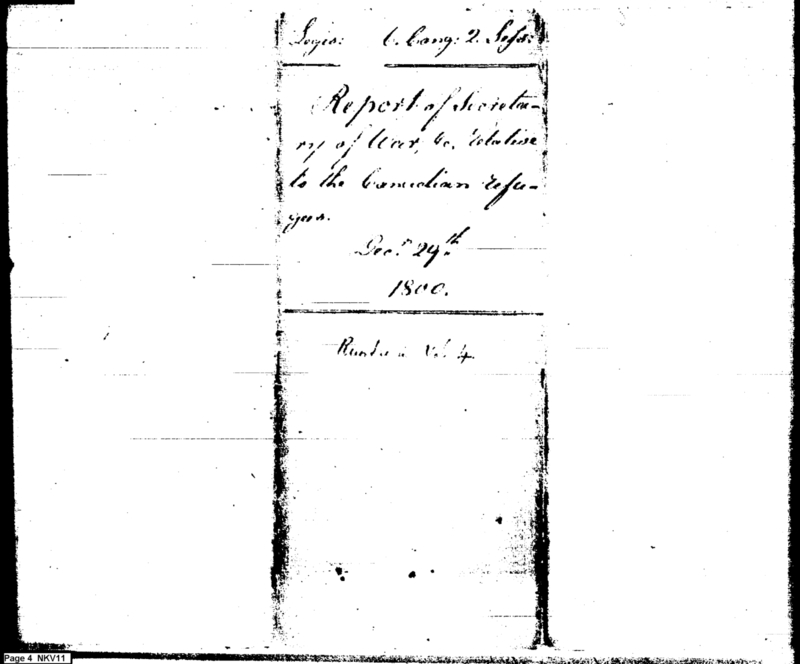 Legis: 6. Cong: 2. Sess:
Report of Secreta-
ry of War, &c. relative
to the Canadian refu-
gees.
Decr. 29th.
1800.
Vol. 4
Page 4 NKV11